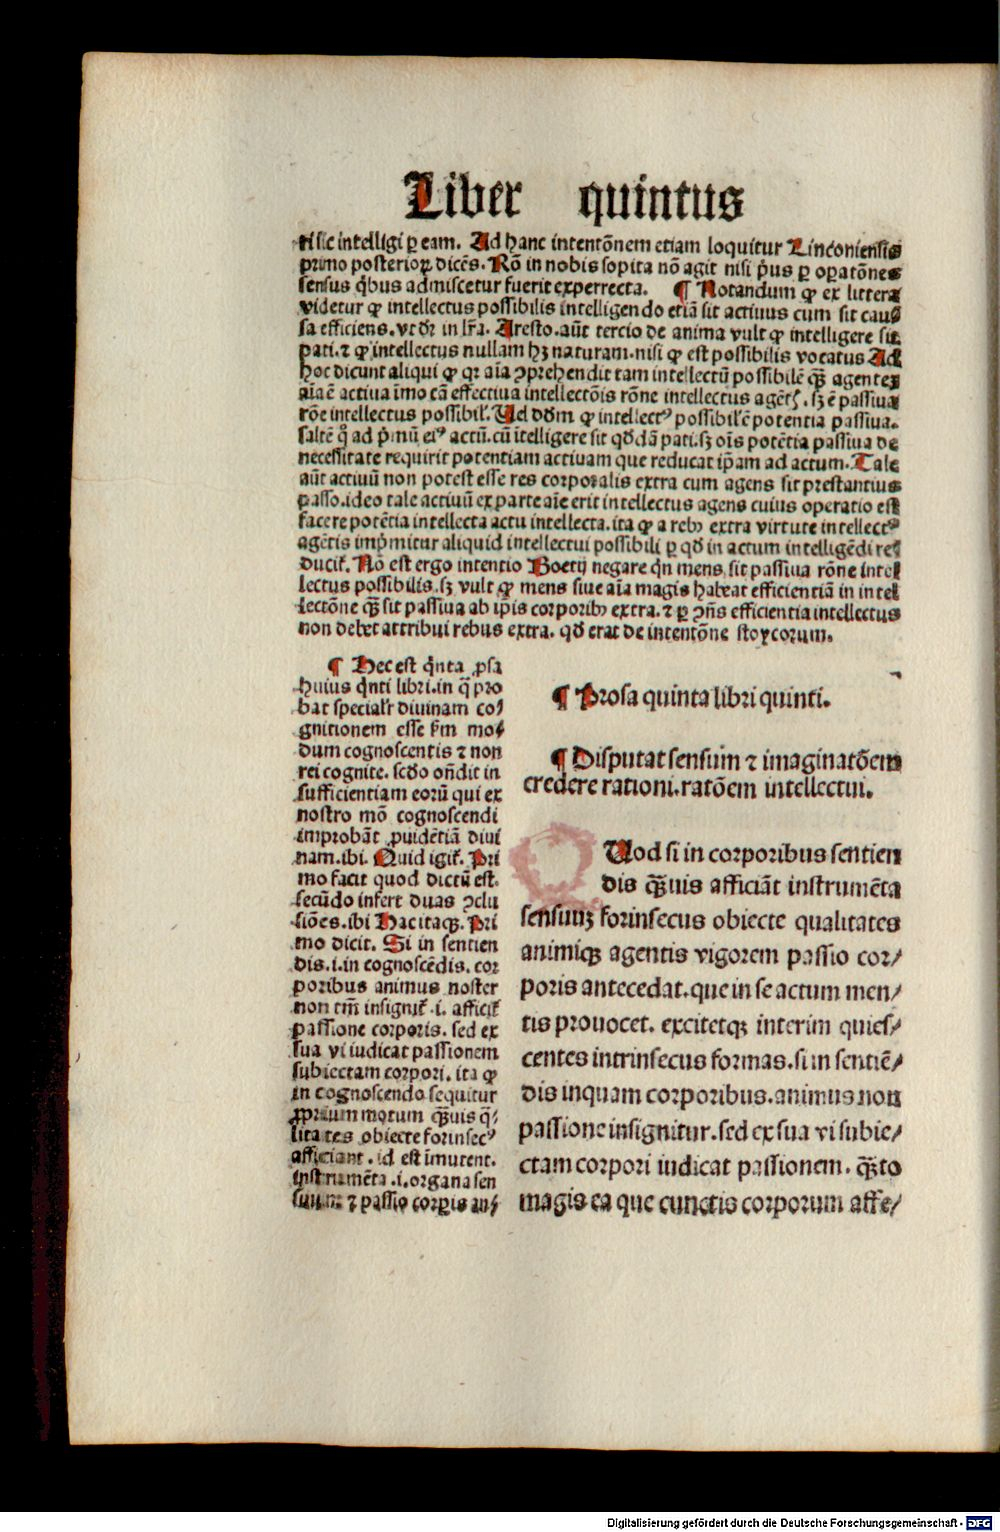 Liber quintus
ri sic intelligi ꝑ eam. Ad hanc intentōnem etiam loquitur Linconiensis
primo posterioꝝ dicēs. Rō in nobis sopita nō agit nisi p̄us ꝑ oꝑatōnes
sensus q̄bus admiscetur fuerit experrecta. ¶ Notandum ꝙ ex littera
videtur ꝙ intellectus possibilis intelligendo etiā sit actiuus cum sit cau
sa efficiens. vt dꝛ in lr̄a. Aresto. aūt tercio de anima vult ꝙ intelligere sit
pati. ⁊ ꝙ intellectus nullam hꝫ naturam. nisi ꝙ est possibilis vocatus Ad
hoc dicunt aliqui ꝙ qꝛ aīa ꝯprehendit tam intellectū possibilē q̄ꝫ agentē
aīa ē actiua īmo cā effectiua intellectōis rōne intellectus agētꝭ. sꝫ ē passiua
rōe intellectus possibiƚ. Uel dōm ꝙ intellectꝰ possibiƚ ē potentia passiua.
saltē q̊ ad p̄mū eiꝰ actū. cū ītelligere sit qd̄dā pati. sꝫ oīs potētia passiua de
necessitate requirit potentiam actiuam que reducat ip̄am ad actum. Tale
aūt actiuū non potest esse res corporalis extra cum agens sit prestantius
passo. ideo tale actiuū ex parte aīe erit intellectus agens cuius operatio est
facere potētia intellecta actu intellecta. ita ꝙ a rebꝫ extra virtute intellectꝰ
agētis imp̄mitur aliquid intellectui possibili ꝑ qd̄ in actum intelligēdi re
ducit᷑. Nō est ergo intentio Boetij negare q̄n mens sit passiua rōne intel
lectus possibilis. sꝫ vult ꝙ mens siue aīa magis habeat efficientiā in intel
lectōne q̄ꝫ sit passiua ab ip̄is corporibꝫ extra. ⁊ ꝑ ꝯn̄s efficientia intellectus
non debet attribui rebus extra. qd̄ erat de intentōne stoycorum.
¶ Hec est q̄nta ꝓsa
huius q̄nti libri. in q̄ pro
bat specialr̄ diuinam co/
gnitionem esse ẜm mo/
dum cognoscentis ⁊ non
rei cognite. scd̄o oñdit in
sufficientiam eorū qui ex
nostro mō cognoscendi
improbāt ꝓuidētiā diui
nam. ibi. Quid igit᷑. Pri
mo facit quod dictū est.
secūdo infert duas ꝯclu
siōes. ibi Hac itaqꝫ. Pri
mo dicit. Si in sentien
dis. i. in cognoscēdis. cor
poribus animus noster
non tm̄ insignit᷑ .i. afficit᷑
passione corporis. sed ex
sua vi iudicat passionem
subiectam corpori. ita ꝙ
in cognoscendo sequitur
ꝓprium motum q̄ꝫuis q̄/
litates obiecte forinsecꝰ
afficiant. id est īmutent.
instrumēta .i. organa sen
suum ⁊ passio corꝑis an/
¶ Prosa quinta libri quinti.
¶ Disputat sensum ⁊ imaginatōem
credere rationi. ratōem intellectui.
QUod si in corporibus sentien
dis q̄ꝫuis afficiāt instrumēta
sensuuꝫ forinsecus obiecte qualitates
animiqꝫ agentis vigorem passio cor/
poris antecedat. que in se actum men/
tis prouocet. excitetqꝫ interim quies/
centes intrinsecus formas. si in sentiē/
dis inquam corporibus. animus non
passione insignitur. sed ex sua vi subie/
ctam corpori iudicat passionem. q̄ꝫto
magis ea que cunctis corporum affe/
Digitalisierung gefördert durch die Deutsche Forschungsgemeinschaft - DFG